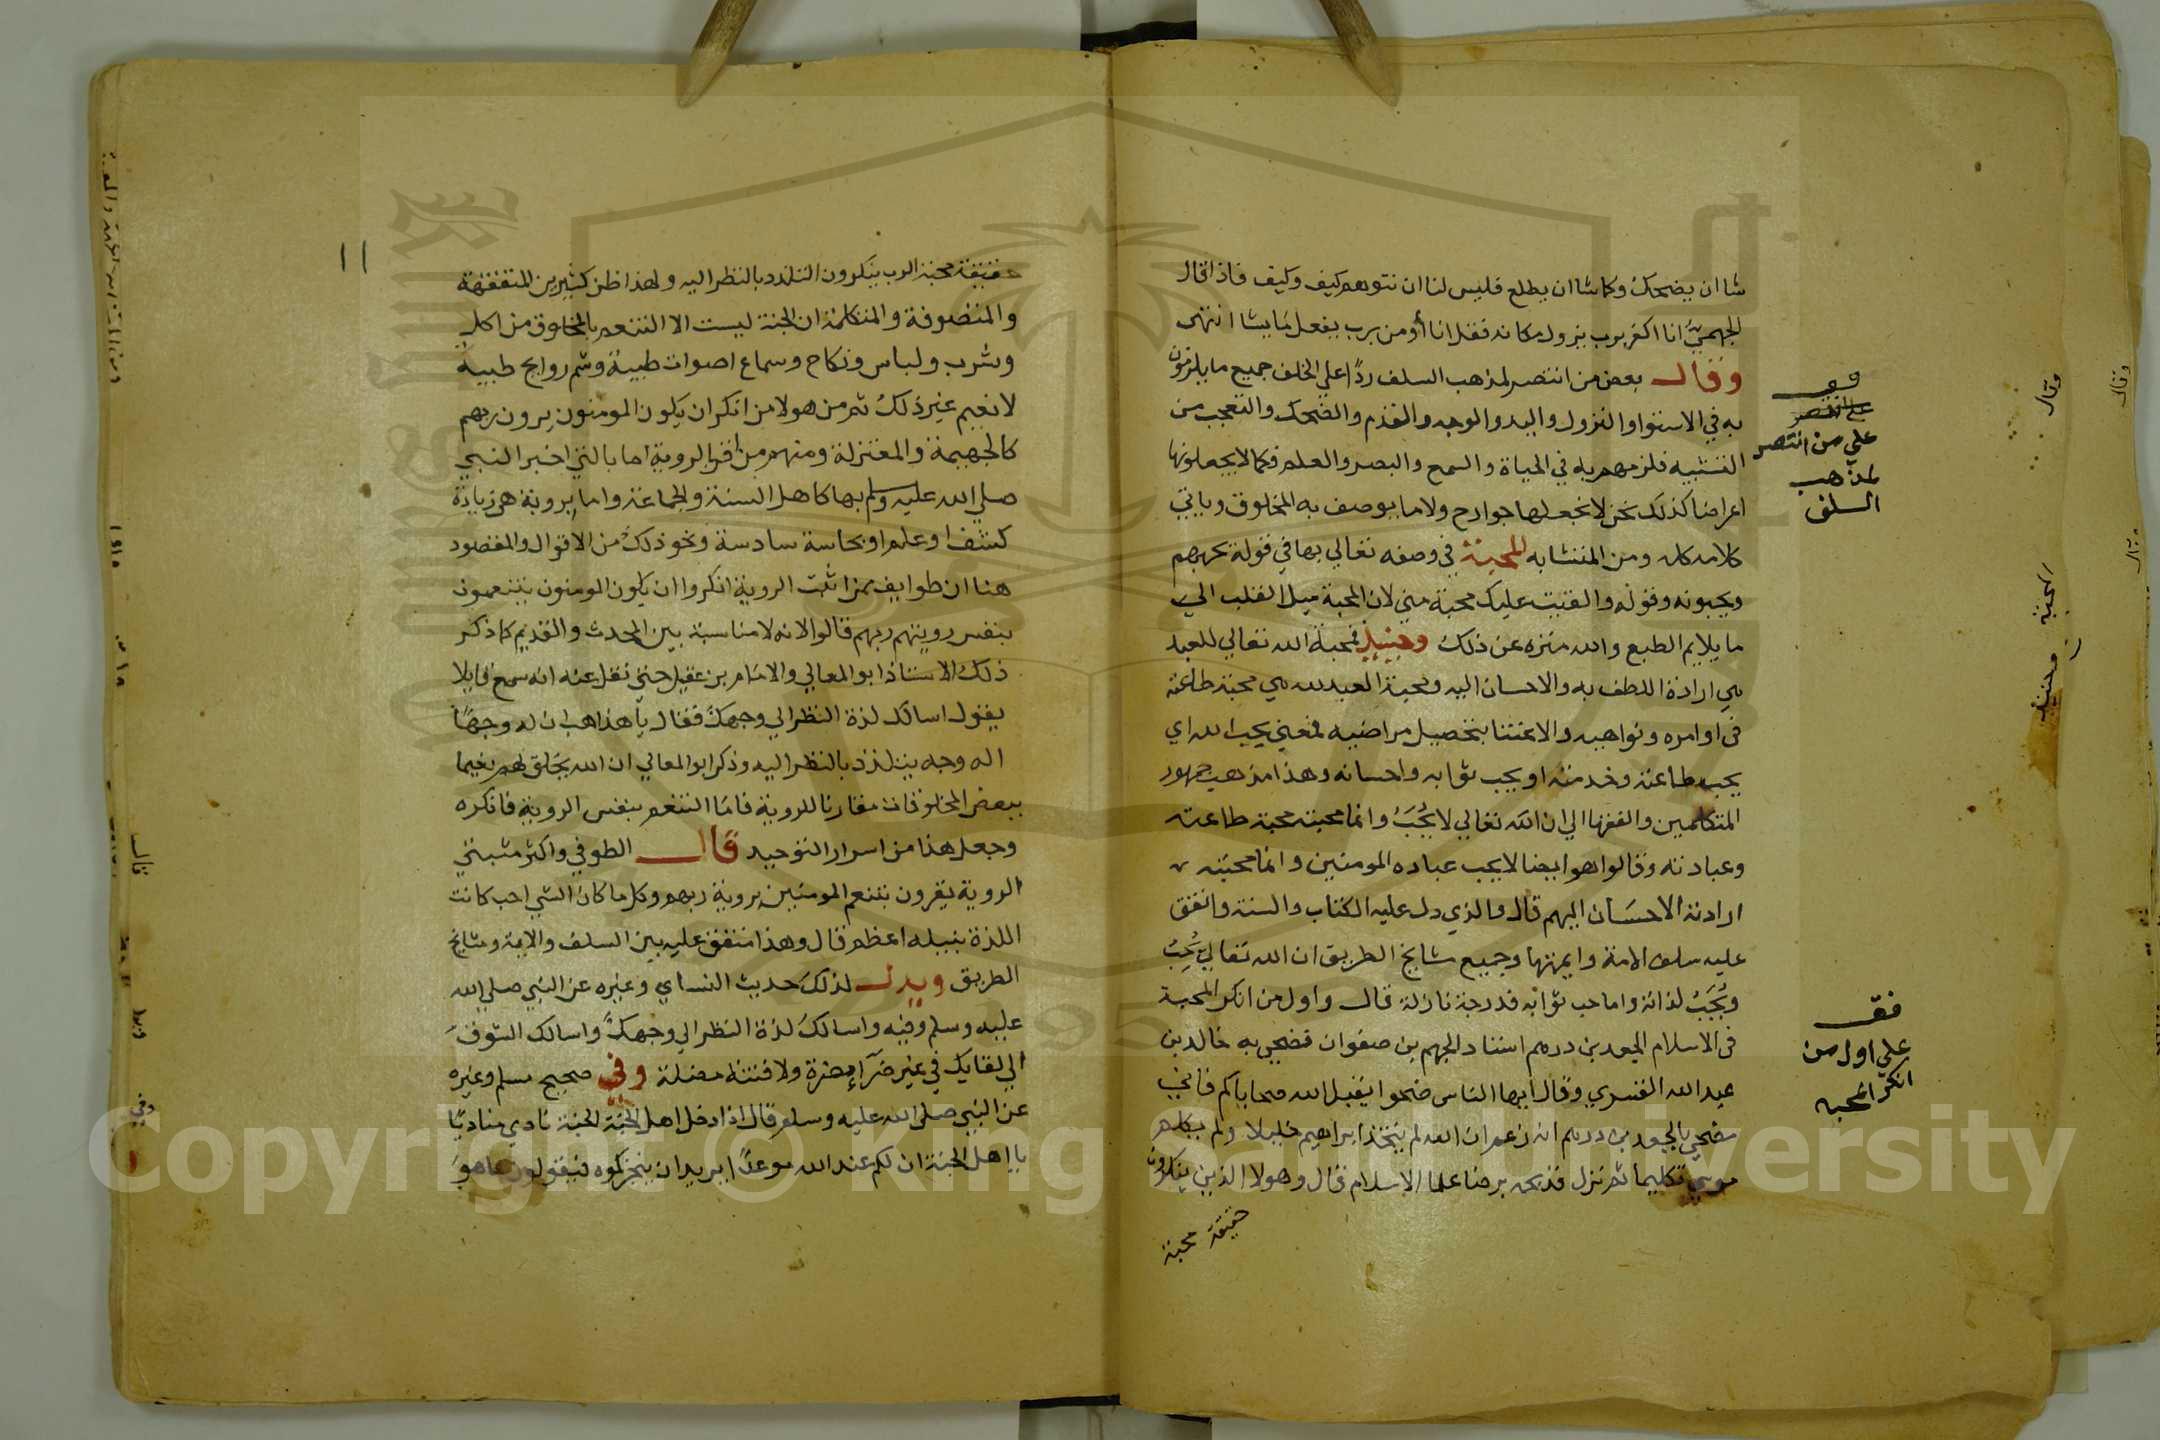 شا ان يضحك وكما شا ان يطلع فليس لنا ان نتوهم كيف وكيف فاذا قال
الجهمي انا اكفر برب يزول مكانه فقل انا أومن برب يفعل ما يشا انتهى
وقال بعض من انتصر لمذهب السلف ردًا علي الخلف جميع ما يلزمون
به في الاستوا والنزول واليد والوجه والقدم والضحك والتعجب من
التشبيه فلزمهم به في الحياة والسمع والبصر والعلم فكما لا يجعلونها
اعراضا كذلك نحن لا نجعلها جوارح ولا ما يوصف به المخلوق وياتي
كلامه كله ومن المتشابه المحبة في وصفه تعالي بها في قوله يحبهم
ويحبونه وقوله والقيت عليك محبة مني لان المحبة ميل القلب الي
ما يلايم الطبع والله منزه عن ذلك وحينيذ فمحبة الله تعالي للعبد
هي ارادة اللطف به والاحسان اليه ومحبة العبد لله هي محبة طاعته
في اوامره ونواهيه والاعتنا بتحصيل مراضيه فمعني يحب الله اي
يحب طاعته وخدمته او يحب ثوابه واحسانه وهذا مذهب جمهور
المتكلمين والفقها الي ان الله تعالي لا يُحَبُ وانما محبته محبة طاعته
وعبادته وقالوا هو ايضا لا يحب عباده المومنين وانما محبته
ارادته الاحسان اليهم قال والذي دل عليه الكتاب والسنة واتفق
عليه سلف الامة وايمتها وجميع مشايخ الطريق ان الله تعالي يُحِبُ
ويُحَبُ لذاته واما حب ثوابه فدرجة نازلة قال واول من انكر المحبة
في الاسلام الجعد بن درهم استاد الجهم بن صفوان فضحي به خالد بن
عبد الله القسري وقال ايها الناس ضحوا يقبل الله ضحاياكم فاني
مضحي بالجعد بن درهم انه زعم ان الله لم يتخذ ابراهيم خليلا ولم يكلم
موسي تكليما ثم نزل فذبحه برضا علما الاسلام قال وهولا الذين ينكرون
حقيقة محبة
قف
علي من انتصر
لمذهب
السلف
فقف
علي اول من
انكر المحبه
١١
حقيقة محبة الرب ينكرون التلذذ بالنظر اليه ولهذا ظن كثير من المتفقهة
والمتصوفة والمتكلمة ان الجنة ليست الا التنعم بالمخلوق من اكل
وشرب ولباس ونكاح وسماع اصوات طيبة وشم روايح طيبة
لا نعيم غير ذلك ثم من هولا من انكر ان يكون المومنون يرون ربهم
كالجهيمة والمعتزلة ومنهم من اقر بالروية اما بالتي اخبر النبي
صلي الله عليه وسلم بها كاهل السنة والجماعة واما بروية هي زيادة
كشف او علم او بحاسة سادسة ونحو ذلك من الاقوال والمقصود
هنا ان طوايف ممن اثبت الروية انكروا ان يكون المومنون يتنعمون
بنفس رويتهم ربهم قالوا لانه لا مناسبة بين المحدث والقديم كما ذكر
ذلك الاستاذ ابو المعالي والامام بن عقيل حتي نقل عنه انه سمع قايلا
يقول اسالك لذة النظر الي وجهك فقال يا هذا هب ان له وجهًا
اله وجه يتلذذ بالنظر اليه وذكر ابو المعالي ان الله يخلق لهم نعيما
ببعض المخلوقات مقارنا للروية فاما التنعم بنفس الروية فانكره
وجعل هذا من اسرار التوحيد قال الطوفي واكثر مثبتي
الروية يقرون بتنعم المومنين بروية ربهم وكل ما كان الشي احب كانت
اللذة بنيله اعظم قال وهذا متفق عليه بين السلف والايمة ومشايخ
الطريق ويدل لذلك حديث النساي وغيره عن النبي صلي الله
عليه وسلم وفيه واسالك لذة النظر الي وجهك واسالك الشوق
الي لقايك في غير ضرآء مضرة ولا فتنة مضلة وفي صحيح مسلم وغيره
عن النبي صلي الله عليه وسلم قال اذا دخل اهل الجنة الجنة نادي مناديًا
يا اهل الجنة ان لكم عند الله موعدًا يريد ان ينجزكموه فيقولون ما هو
Copyright © King Saud University